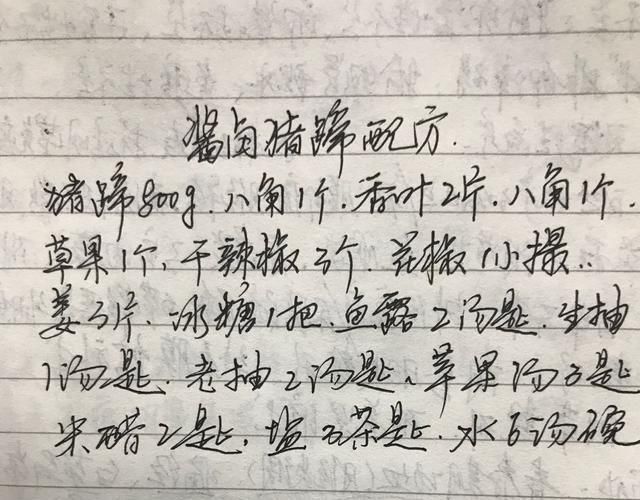 酱卤猪蹄配方.
猪蹄800g.八角1个.香叶2片.八角1个.
草果1个,干辣椒3个.花椒1小撮..
姜3片.冰糖1把.鱼露2汤匙.生抽
1汤匙.老抽2汤匙、苹果汤3匙
米醋2匙.盐3茶匙.水6汤碗